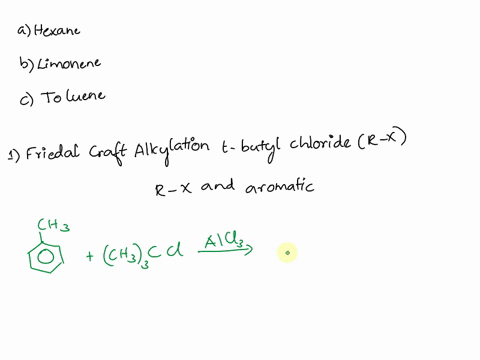 a) Hexane
b) Limonene
c) Toluene
1) Friedal Craft Alkylation t-butyl chloride (R-X)
R-X and aromatic
CH3
+ (CH3)3CCl AlCl3